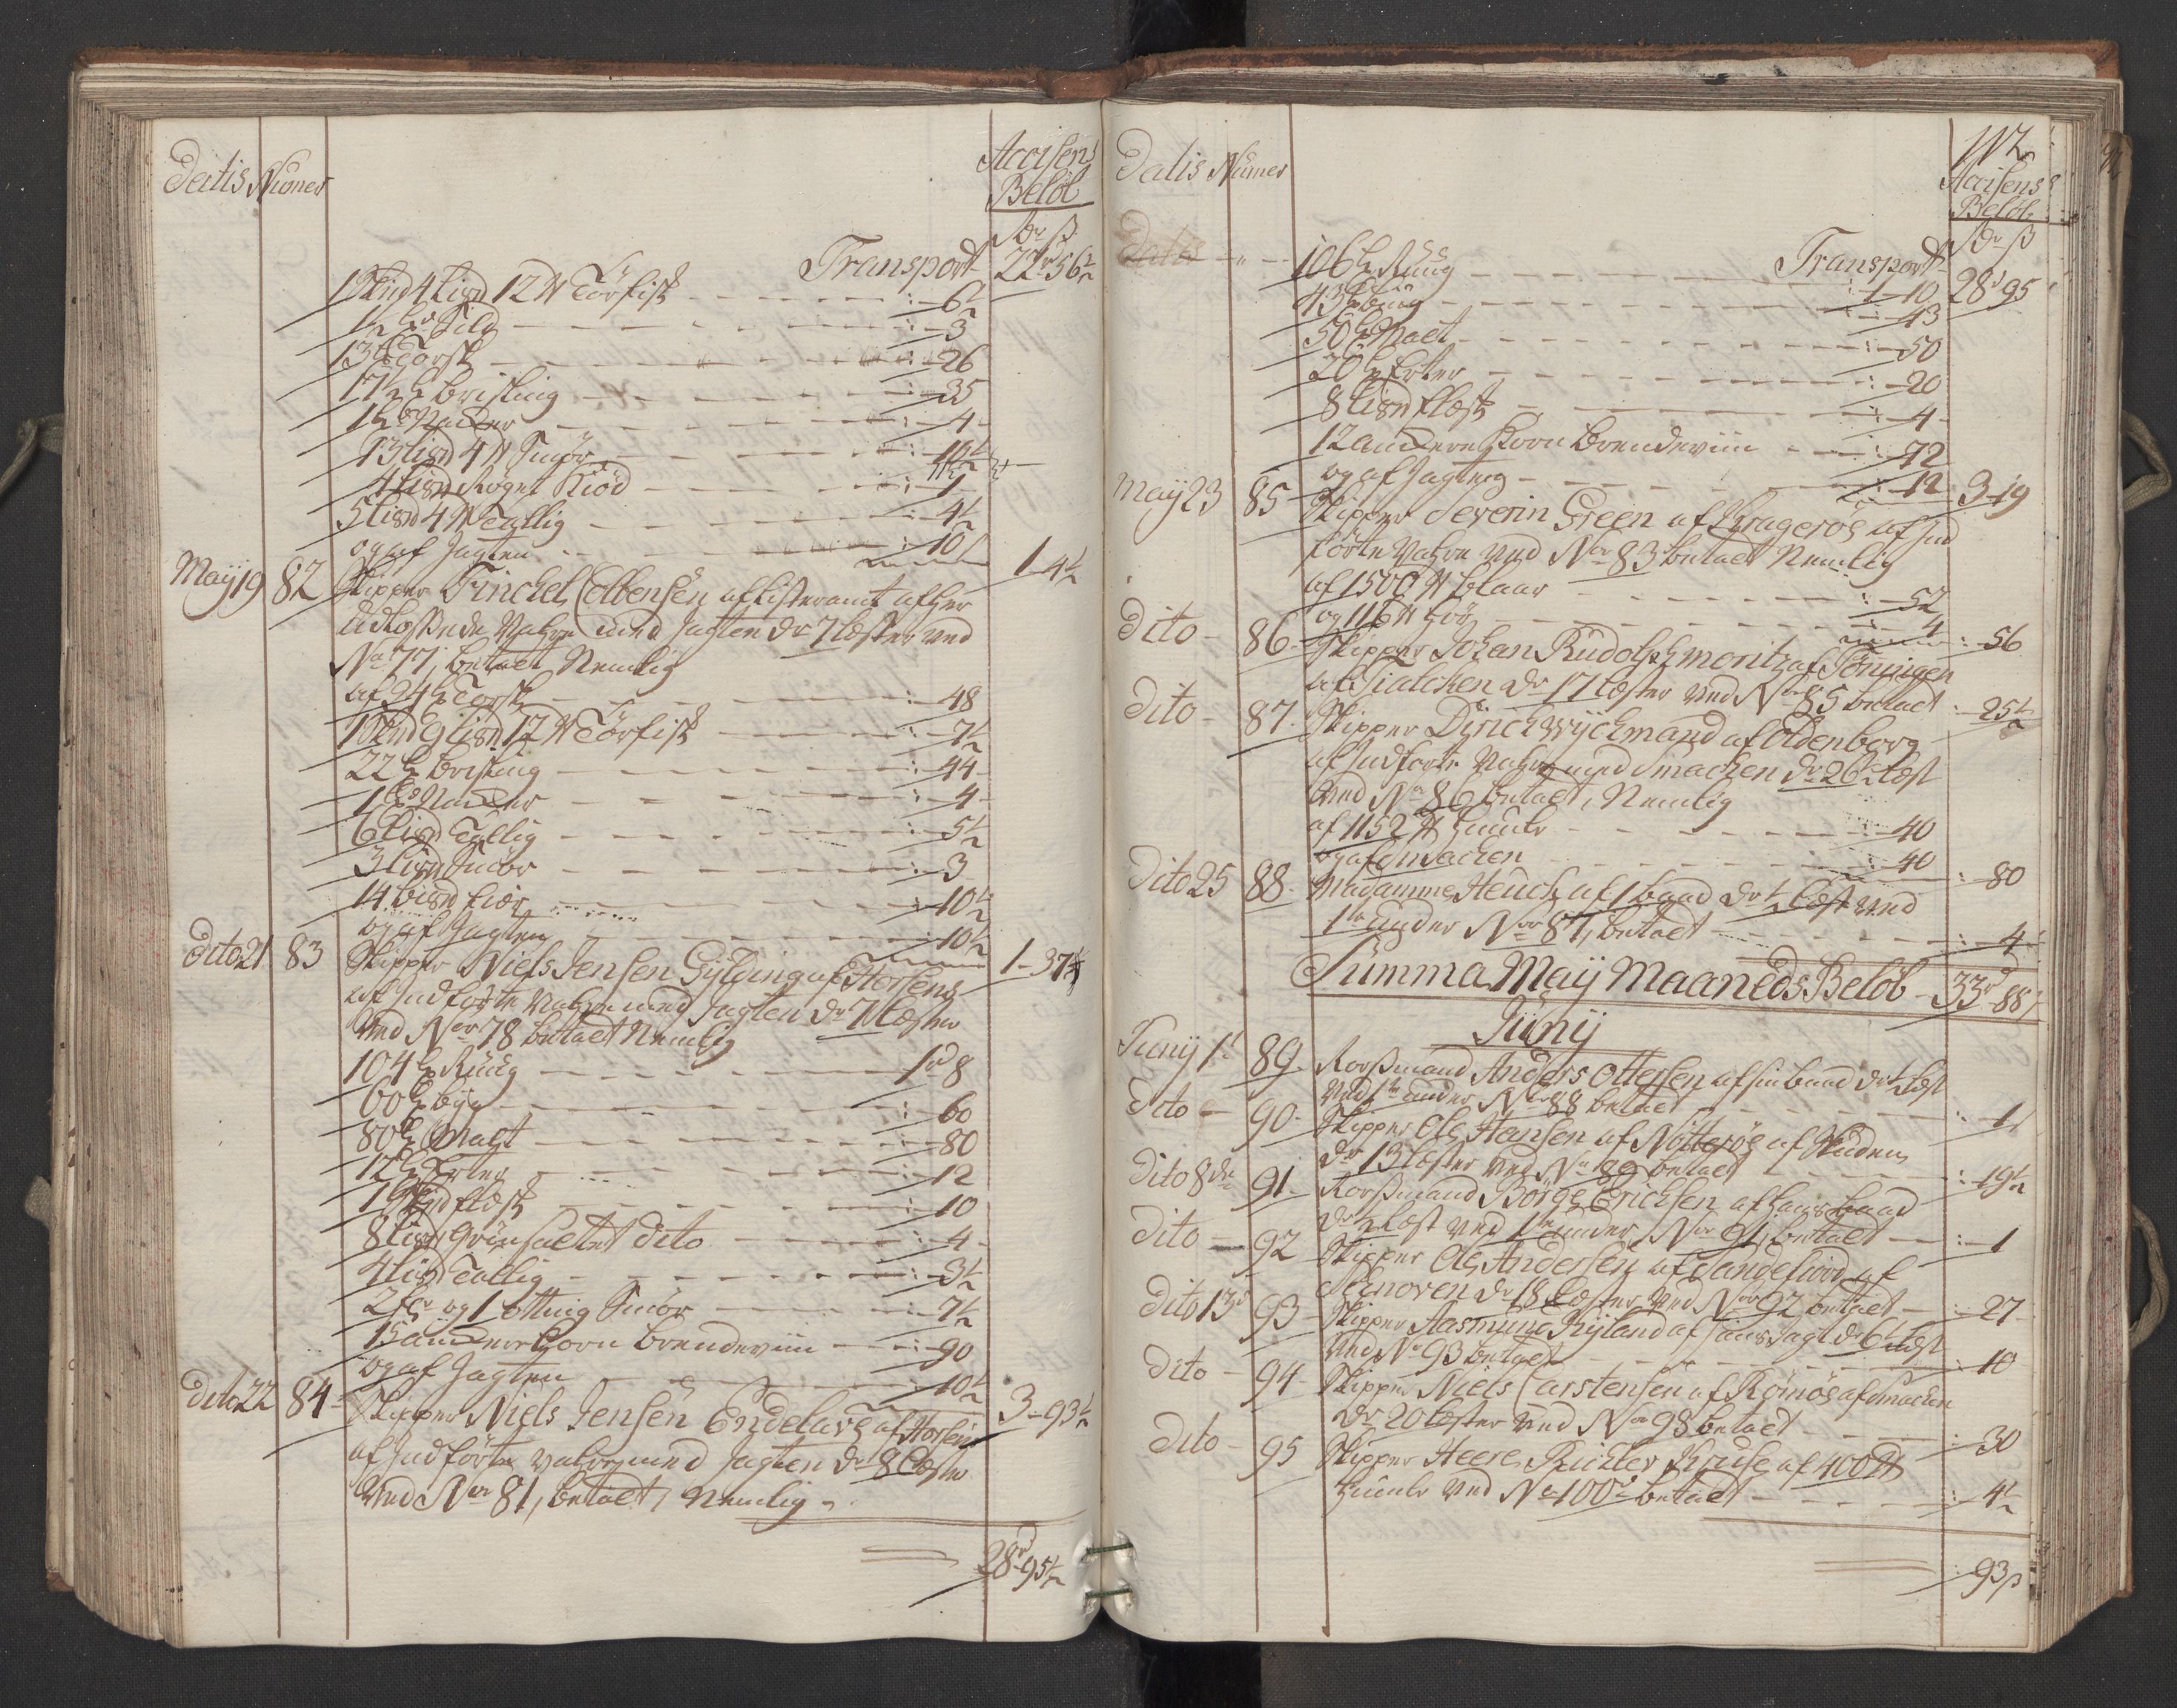 Datis Numer
Accisens
Beløb
Rdr ß
Transport 22 56½
1 Skpd 4 Lispd 12 ℔ Törfisk — 6½
1½ Td Sild — 3
13 Td Torsk — 26
17½ Td brisling — 35
1 Td — 4
13 Lispd 4 ℔ Smör — 10½
4 Lispd Röget Kiöd — 1
5 Lispd 4 ℔ Tallig — 4½
og af Jagten — 10½ 1-4½
Maÿ 19 82 Skipper Finckel Colbensen af Listeramt af her
Udlossede Vahre med Jagten dr 7 læster ved
No 77, betalt Nemlig
af 24 Td Torsk — 48
1 Skpd 9 Lispd 12 ℔ Törfisk — 7½
22 Td brisling — 44
1 Td — 4
6 Lispd Tallig — 5½
3 Lispd Smör — 3
14 bispd fiær — 10½
og af Jagten — 10½ 1-37½
Dito 21 83 Skipper Niels Jensen Gÿlding af Horsens
af Indførte Vahre med Jagten dr 7 Læster
Ved No 78 betalt Nemlig
104 Td Rüüg — 1 8
60 Td bÿg — 60
80 Td Malt — 80
12 Td Erter — 12
1 Skpd flæsk — 10
8 Lispd grönsaltet dito — 4
4 Lispd Tallig — 3½
2 og 1 otting Smör — 7½
15 anckere Korn brendeviin — 90
og af Jagten — 10½ 3-93½
Dito 22 84 Skipper Niels Jensen Endelave af Horsens
af Indførte Vahre med Jagten dr 8 Læster
Ved No 81, betalt, Nemlig
28 95½
112
Datis Numer
Accisens
Beløb
Rdr ß
Transport 28 95
106 Td Rüüg — 1-10
43 Td büg — 43
50 Td Malt — 50
20 Td Erter — 20
8 Lispd flæsk — 4
12 anckere Korn brendeviin — 72
og af Jagten — 12 3-19
Maÿ 23 85 Skipper Severin Green af Krageröe af Ind
førte Vahre Ved No 83 betalt Nemlig
af 1500 ℔ blaar — 52
og 116 ℔ hör — 4 56
Dito 86 Skipper Johan Rudolph moritz af Töningen
af Tialcken dr 17 læster Ved No 85 betalt 25½
Dito 87 Skipper Dirich Wÿchmand af Oldenborg
af Indførte Vahre med Smacken dr 26 læst
Ved No 86 betalt, Nemlig
af 1152 ℔ humle — 40
og af Smacken — 40 80
Dito 25 88 Madamme Heuch af 1 baad dr ½ læst Ved
under No 87, betalt — 4
Summa Maÿ Maaneds Beløb 33-88
Junÿ
Junÿ 1 89 Korssmand Anders Ottersen af sin baad dr ½ læst
Ved under No 88 betalt — 1
Dito 90 Skipper Ole Hansen af Nötteröe af Skuden
dr 13 læster Ved No 89 betalt — 19½
Dito 8de 91 Korssmand Börge Erichsen af hans baad
dr ½ læst Ved under No 91, betalt — 1
Dito 92 Skipper Ole Andersen af Sandefiord af
Schnoven dr 18 Læster Ved No 92 betalt 27
Dito 13 93 Skipper Aasmund Rÿland af sin Jagt dr 6½ læst
Ved No 93 betalt — 10
Dito 94 Skipper Niels Carstensen af Römöe af Smacken
dr 20 læster Ved No 98 betalt — 30
Dito 95 Skipper Heere Richler Kruse af 400 ℔
humle Ved No 100 betalt — 4½
93 ß